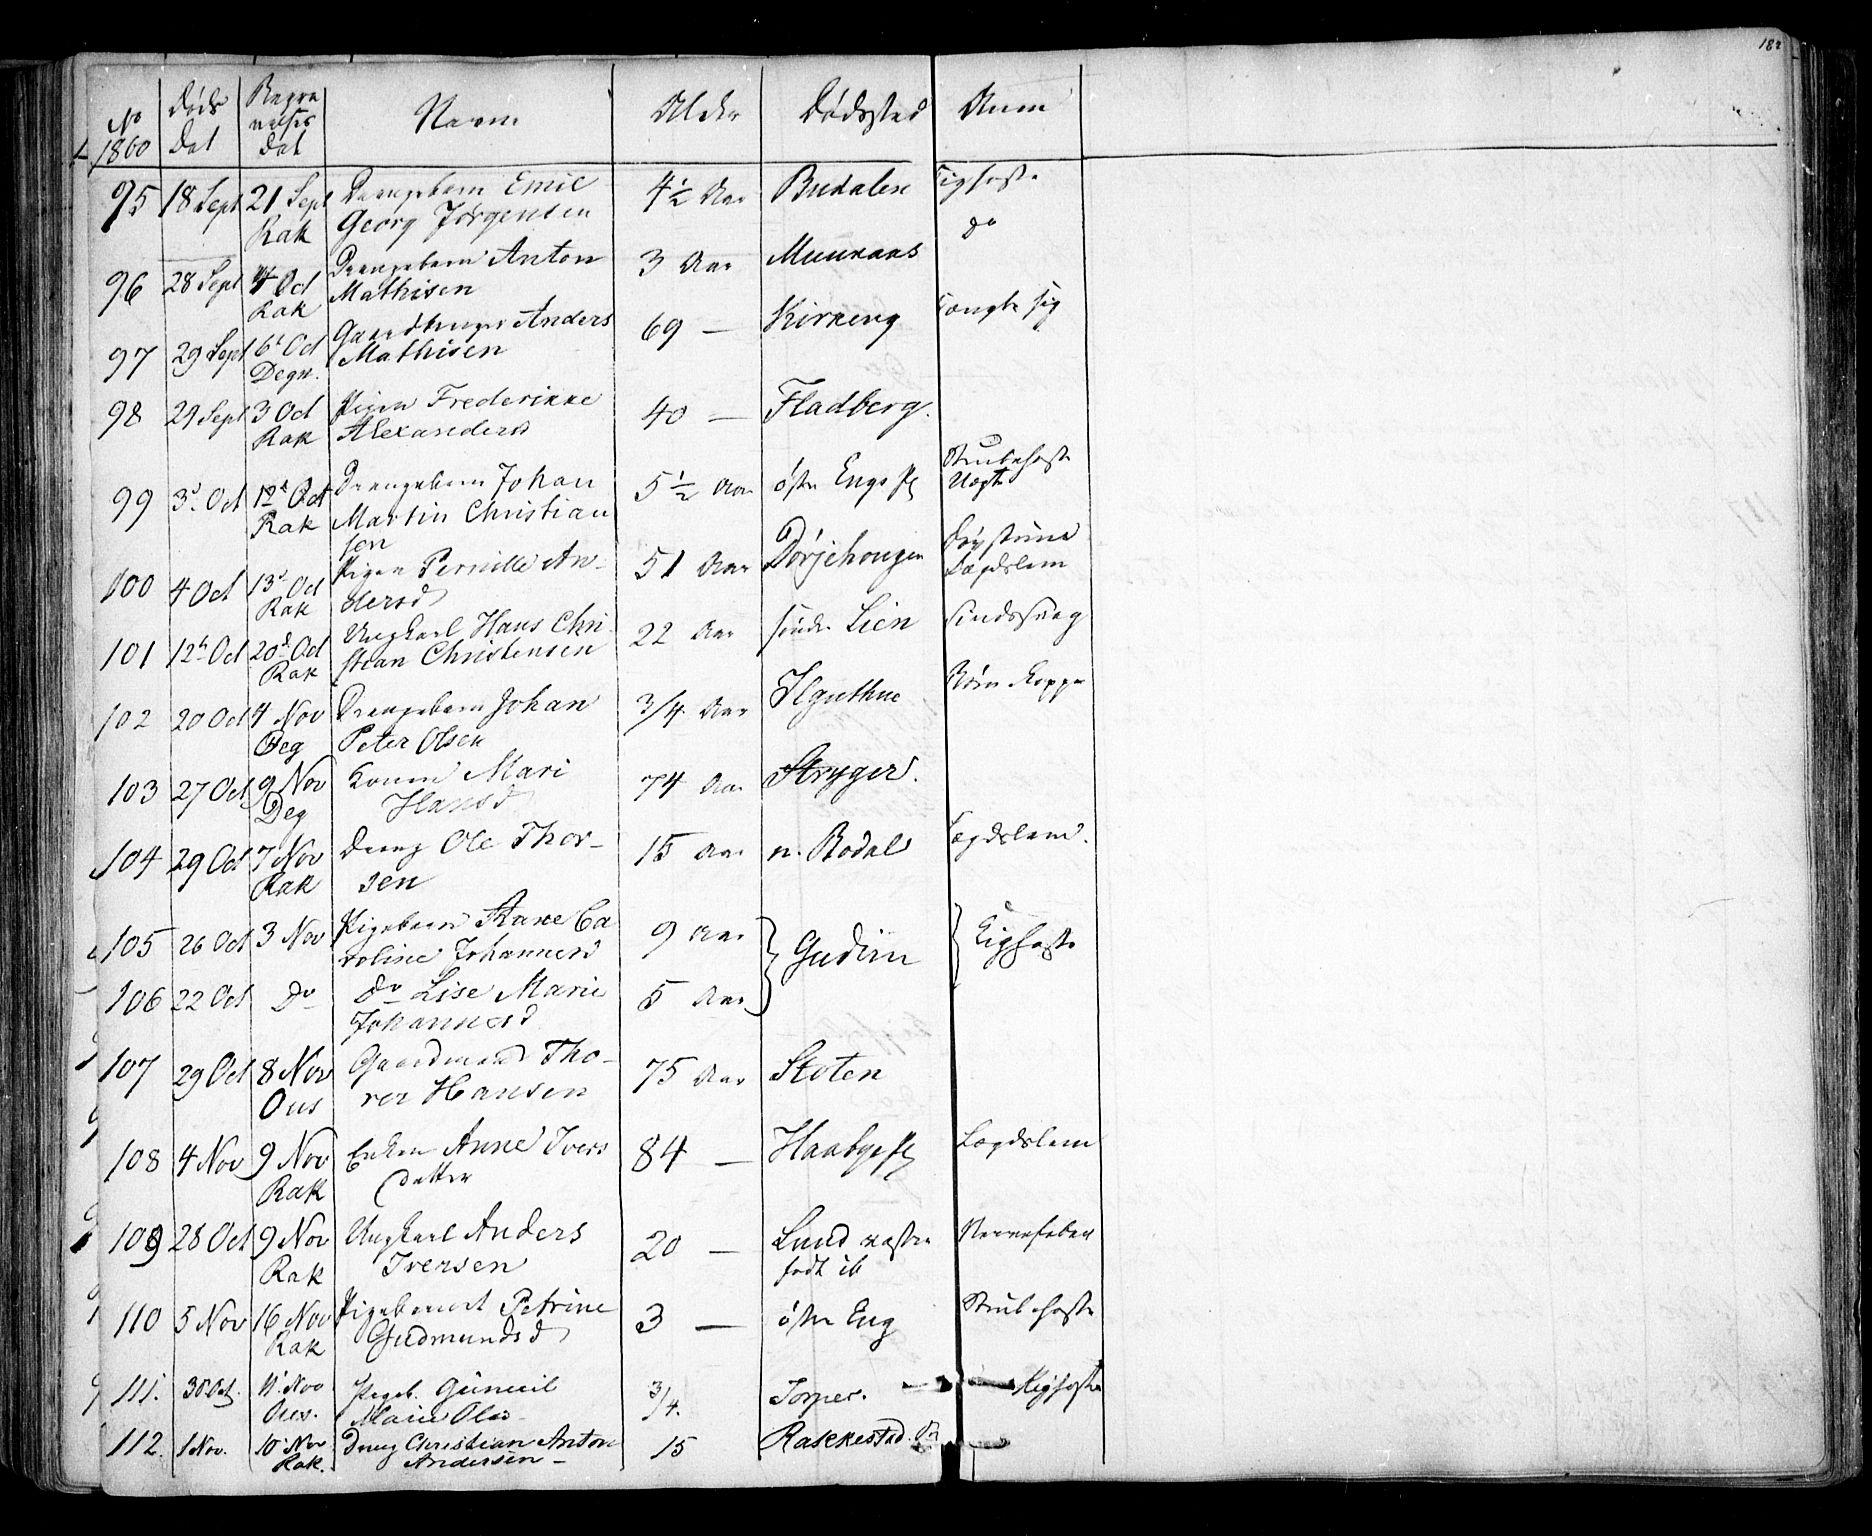 182
No 1860 | Døds Dat | Begravelses Dat | Navn | Alder | Dødssted | Anm
95 | 18 Sept | 21 Sept Rak | Drengebarn Emil
Georg Jørgensen | 4½ Aar | Budalen | Kighoste
96 | 28 Sept | 4 Oct Rak | Drengebarn Anton
Mathisen | 3 Aar | | do
97 | 29 Sept | 6t Oct Degn. | Gaardbruger Anders
Mathisen | 69 — | Kirkeng | hængte sig
98 | 29 Sept | 3 Oct Rak | Pigen Frederikke
Alexandersd | 40 — | Fladberg.
99 | 3d Oct | 12t Oct Rak | Drengebarn Johan
Martin Christian
sen | 5½ Aar | østre Engs | Strubehoste
100 | 4 Oct | 13d Oct Rak | Pigen Pernille An-
dersd | 51 Aar | Dørjehougen | Lægdslem
101 | 12t Oct | 20d Oct Rak | Ungkarl Hans Chri
stian Christensen | 22 Aar | søndre Lien | sindssvag
102 | 20 Oct | 4 Nov Deg | Drengebarn Johan
Peter Olsen | 3/4 Aar | | Kopper
103 | 27 Oct | 9 Nov Deg | Konen Mari
Hansd | 74 Aar | Stryger.
104 | 29 Oct | 7 Nov Rak | Dreng Ole Thor-
sen | 15 Aar | n. Bodal | Lægdslem.
105 | 26 Oct | 3 Nov | Pigebarn Anne Ca
roline Johannesd | 9 Aar | Gudim | Kighoste
106 | 22 Oct | Do | do Lise Marie
Johannesd | 5 Aar
107 | 29 Oct | 8 Nov Ous | Gaardmand Tho-
rer Hansen | 75 Aar | Stoten
108 | 4 Nov | 9 Nov Rak | Enken Anne Ivers
datter | 84 — | | Lægdslem
109 | 28 Oct | 9 Nov Rak | Ungkarl Anders
Iversen | 20 — | Lund væstre
født ib | Nervefeber
110 | 5 Nov | 16 Nov Rak | Pigebarnet Petrine
Gudmundsd | 3 — | østre Eng | Strubehoste
111. | 30 Oct. | 11 Nov Ous. | Pigeb. Gunnil
Marie Olsd | 3/4. | Torper. | Kighoste
112. | 1 Nov. | 10 Nov Rak. | Dreng Christian Anton
Andersen — | 15 | Rakkestad